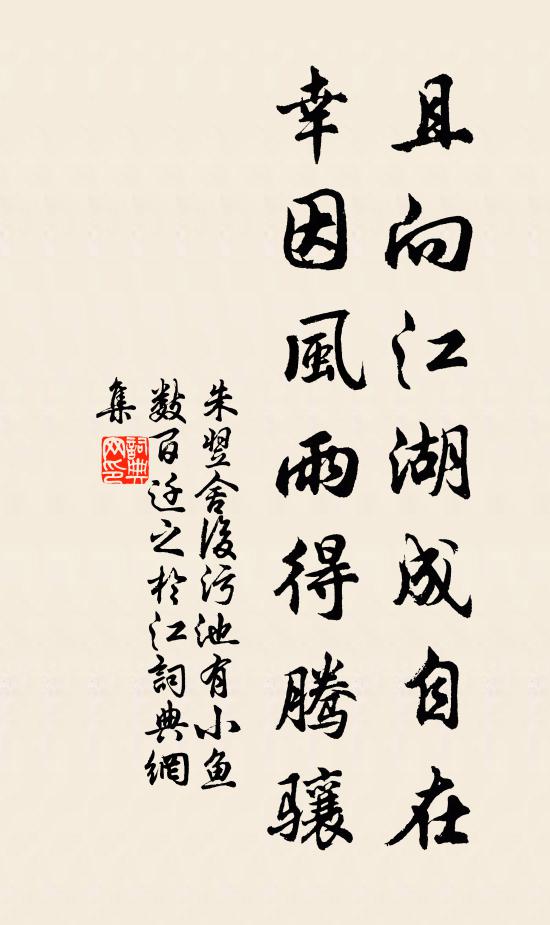 且向江湖成自在
幸因風雨得腾骧
朱翌舍後污池有小鱼
数百迁之於江詞典網
集
詞典
网印